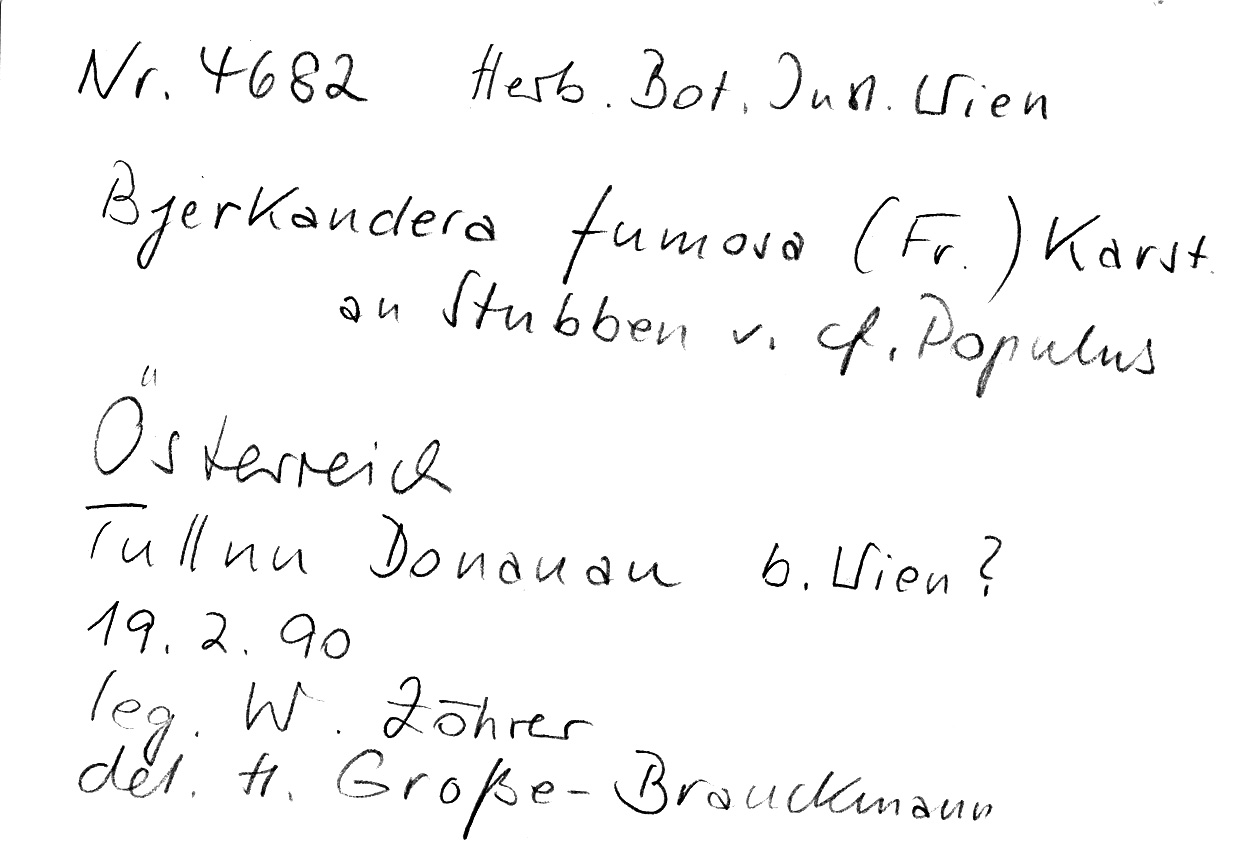 Nr. 4682 Herb. Bot. Inst. Wien
Bjerkandera fumosa (Fr.) Karst.
an Stubben v. cf. Populus
Österreich
Tullnn Donauau b. Wien?
19. 2. 90
leg. W. Zöhrer
det. H. Große-Brauckmann